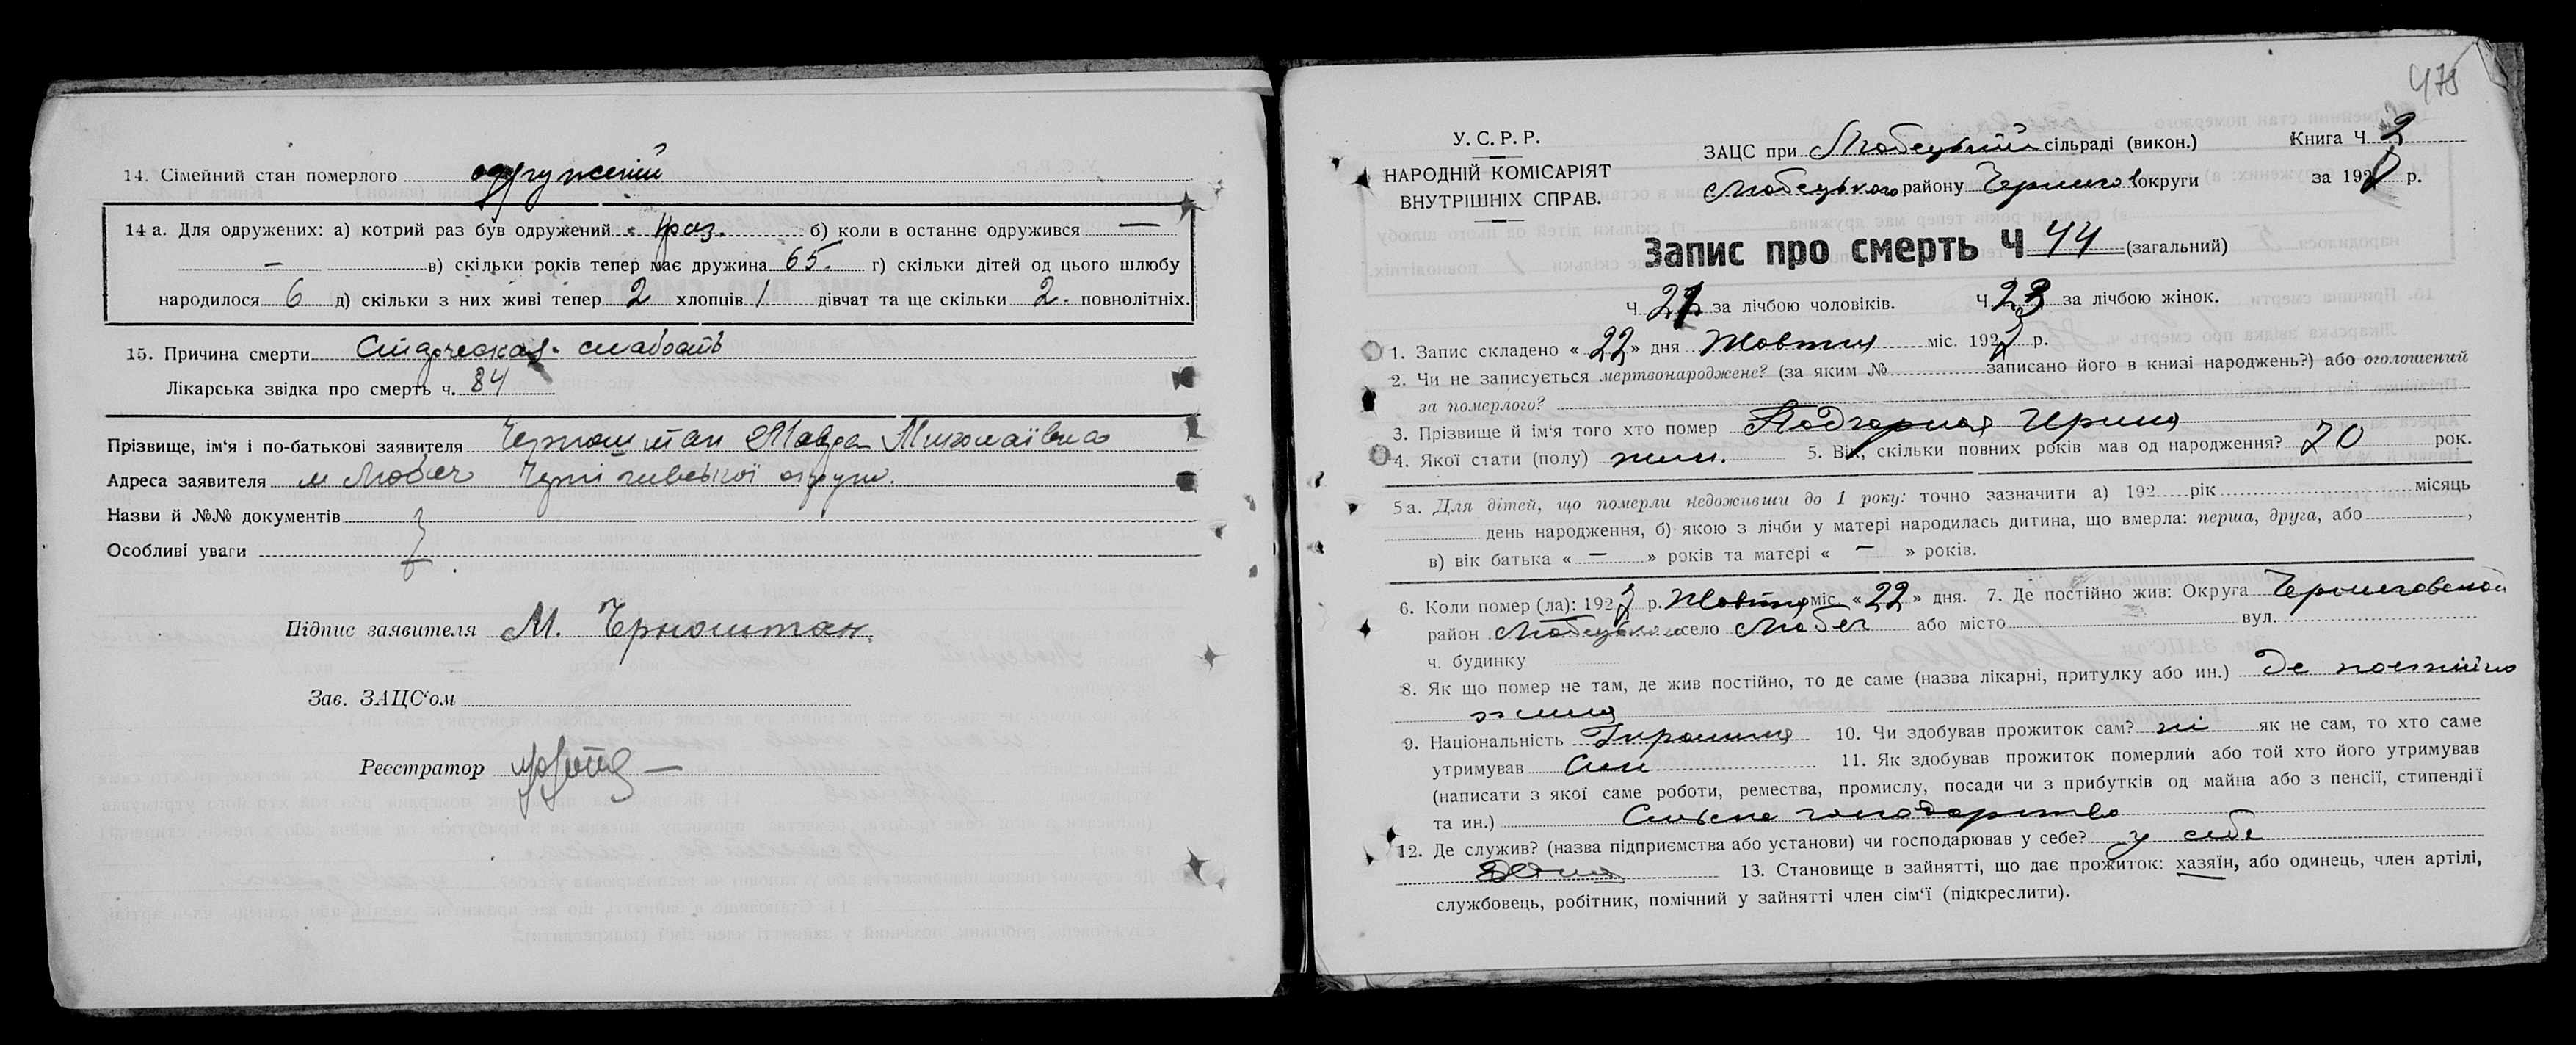 14. Сімейний стан померлого одружений
14 а. Для одружених: а) котрий раз був одружений 1 раз. б) коли в останнє одружився —
— в) скільки років тепер має дружина 65. г) скільки дітей од цього шлюбу
народилося 6 д) скільки з них живі тепер 2 хлопців 1 дівчат та ще скільки 2. повнолітніх.
15. Причина смерти Старческая слабость
Лікарська звідка про смерть ч. 84
Прізвище, ім'я і по-батькові заявителя Черноштан Мавра Миколаївна
Адреса заявителя м Любеч Чернігивської округи.
Назви й №№ документів
Особливі уваги
Підпис заявителя М. Черноштан.
Зав. ЗАЦС'ом
Реєстратор
475
У. С. Р. Р.
НАРОДНІЙ КОМІСАРІЯТ
ВНУТРІШНІХ СПРАВ.
ЗАЦС при Любецький сільраді (викон.) Книга Ч. 2
Любецького району Чернигов округи за 1927 р.
Запис про смерть Ч 44 (загальний)
Ч 21 за лічбою чоловіків. Ч 23 за лічбою жінок.
1. Запис складено « 22 » дня Жовтня міс. 1927 р.
2. Чи не записується мертвонароджене? (за яким № записано його в книзі народжень?) або оголошений
за померлого?
3. Прізвище й ім'я того хто помер Подгорная Ирина
4. Якої стати (полу) жин. 5. Вік, скільки повних років мав од народження? 70 рок.
5 а. Для дітей, що померли недоживши до 1 року: точно зазначити а) 192 рік місяць
день народження, б) якою з лічби у матері народилась дитина, що вмерла: перша, друга, або ,
в) вік батька « — » років та матері « — » років.
6. Коли помер (ла): 1927 р. Жовтня міс. « 22 » дня. 7. Де постійно жив: Округа Черниговской
район Любецький село Любеч або місто вул.
ч. будинку
8. Як що помер не там, де жив постійно, то де саме (назва лікарні, притулку або ин.) Де постійно
жила
9. Національність Украинка 10. Чи здобував прожиток сам? ні як не сам, то хто саме
утримував Син 11. Як здобував прожиток померлий або той хто його утримував
(написати з якої саме роботи, ремества, промислу, посади чи з прибутків од майна або з пенсії, стипендії
та ин.) Сильске господарство
12. Де служив? (назва підприємства або установи) чи господарював у себе? у себе
13. Становище в зайнятті, що дає прожиток: хазяїн, або одинець, член артілі,
службовець, робітник, помічний у зайнятті член сім'ї (підкреслити).